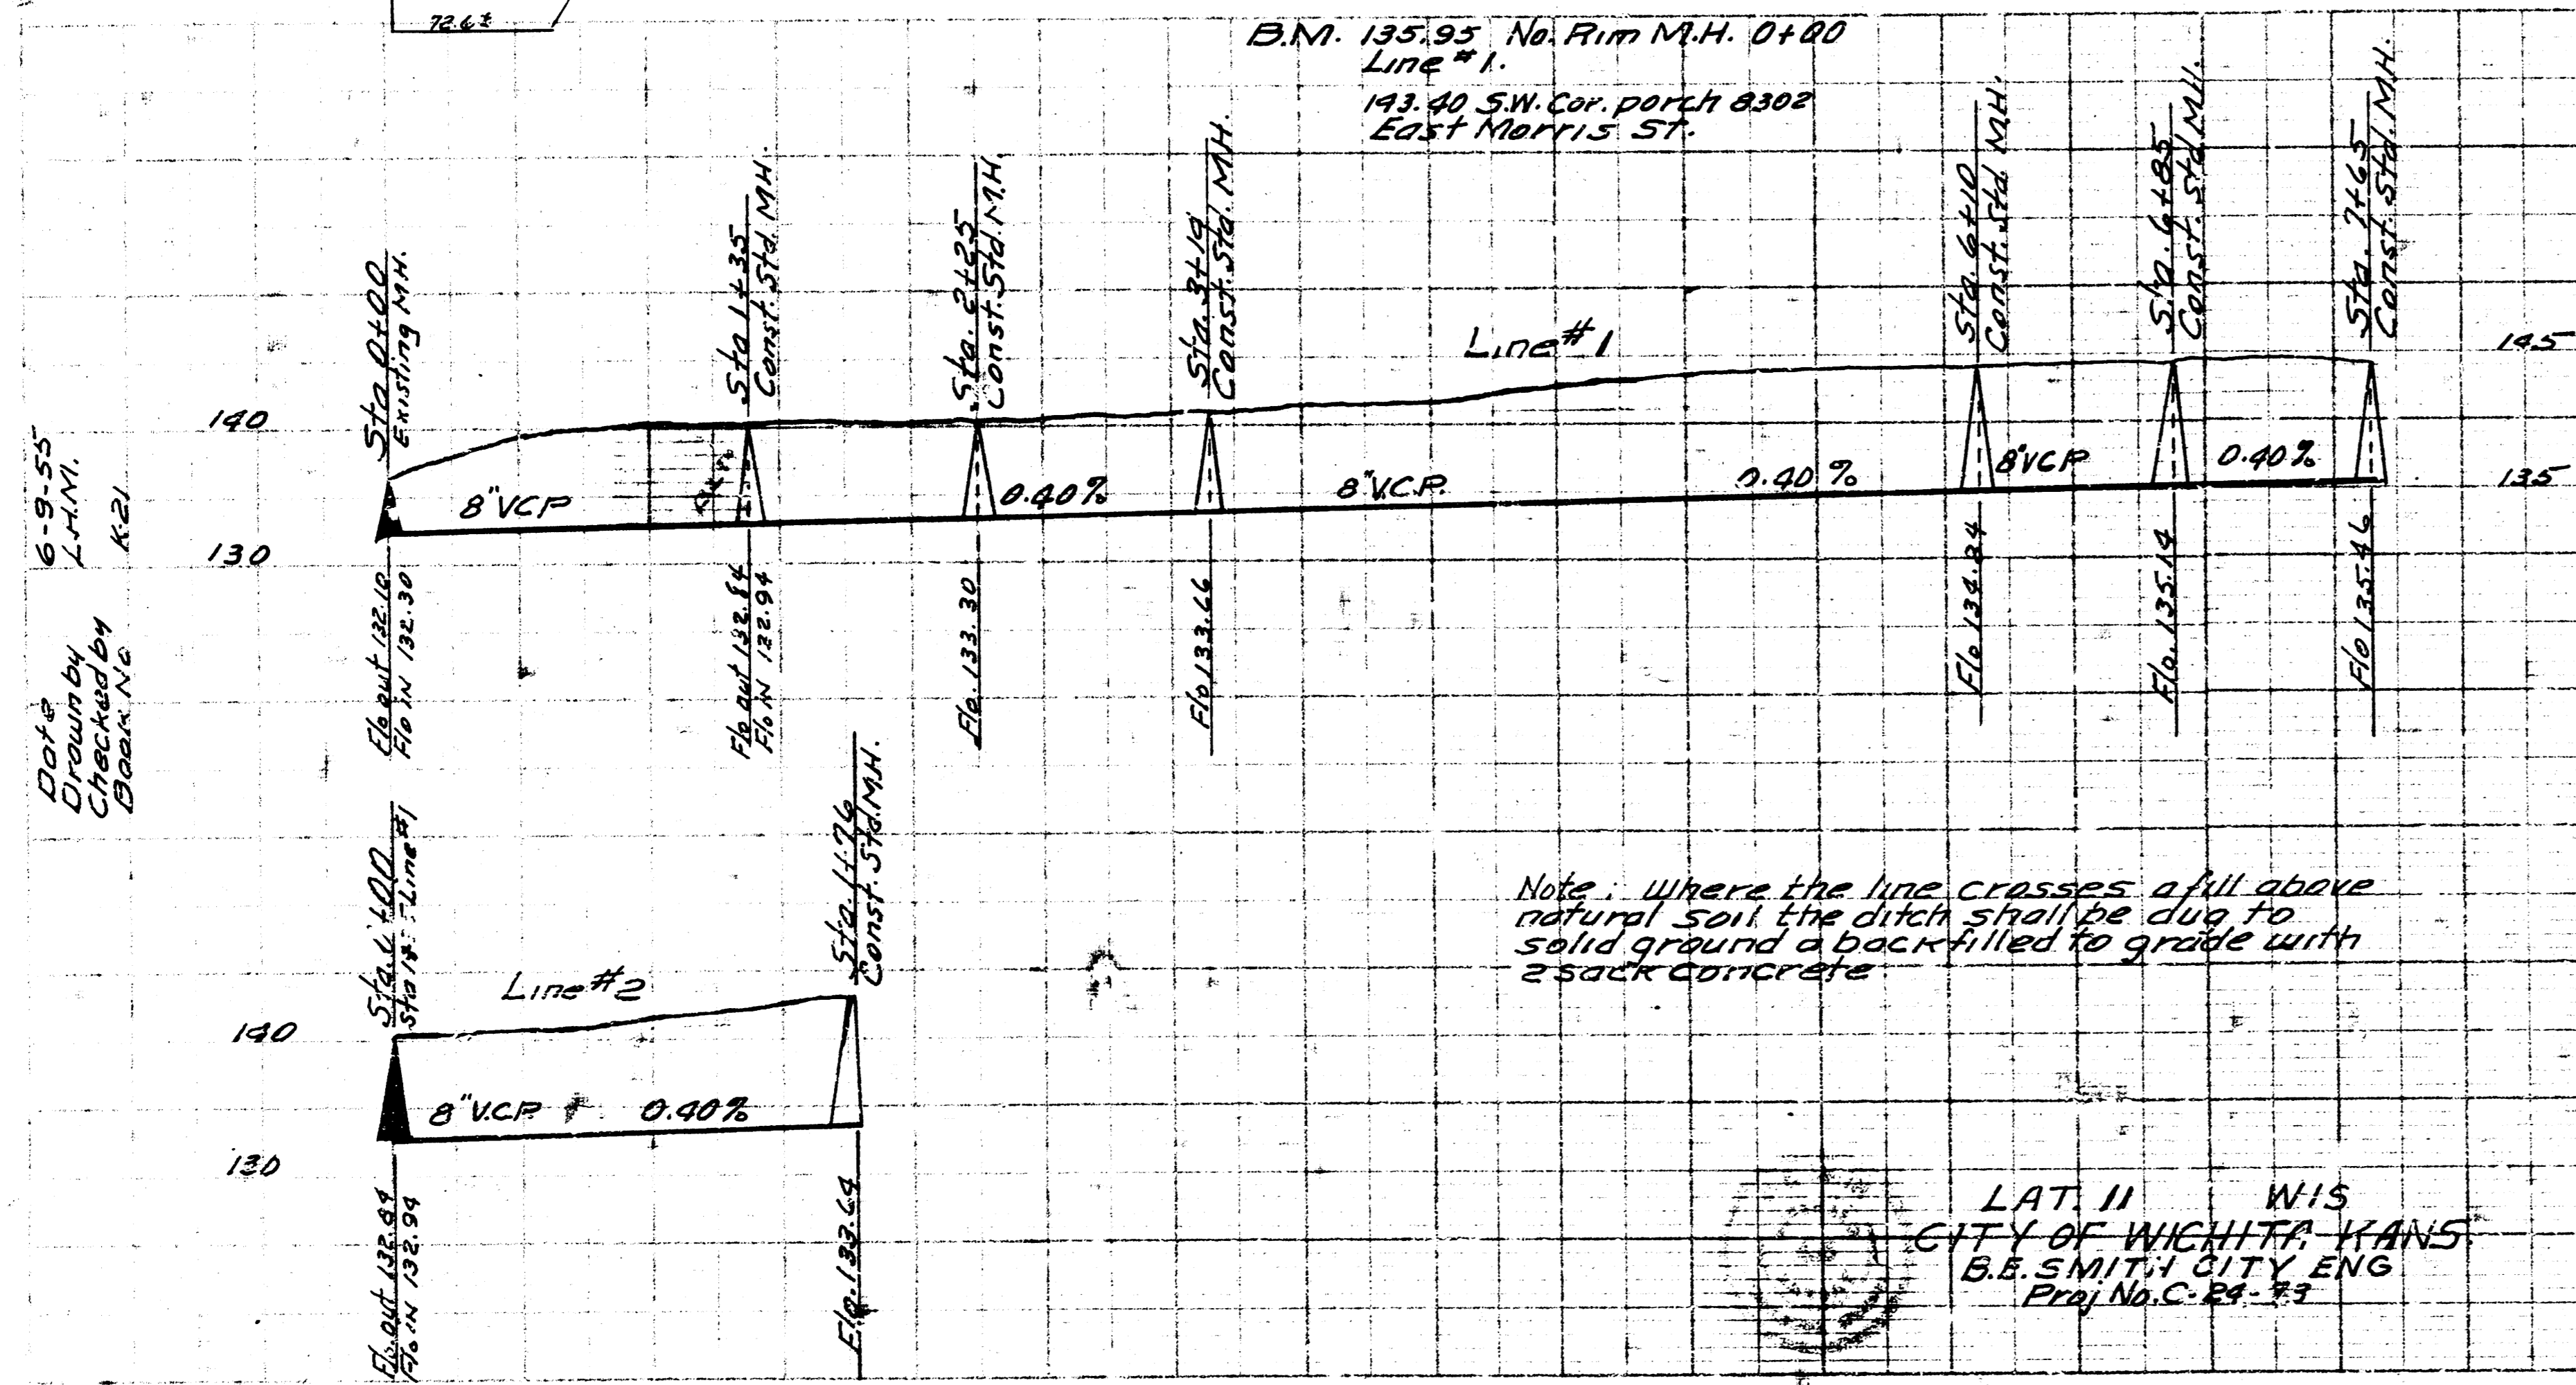 72.6±
B.M. 135.95 No. Rim M.H. 0+00
Line #1.
143.40 S.W. Cor. porch 8302
East Morris St.
Sta 0+00
Existing M.H.
Sta 1+35
Const. Std. M.H.
Sta. 2+25
Const. Std. M.H.
Sta. 3+19
Const. Std. M.H.
Sta 6+10
Const. Std. M.H.
Sta. 6+85
Const. Std. M.H.
Sta. 7+65
Const. Std. M.H.
Line #1
145
140
8" VCP
0.40%
8" V.C.P.
0.40%
8" VCP
0.40%
135
130
Flo out 132.10
Flo IN 132.30
Flo out 132.84
Flo IN 132.94
Flo. 133.30
Flo 133.66
Flo. 134.84
Flo. 135.14
Flo 135.46
Date 6-9-55
Drawn by L.H.M.
Checked by
Book No K-21
Sta. 0+00
Line #1
Sta. 1+76
Const. Std. M.H.
Line #2
140
8" V.C.P. 0.40%
130
Flo. out 132.84
Flo IN 132.94
Flo. 133.64
Note: Where the line crosses a fill above
natural soil the ditch shall be dug to
solid ground & backfilled to grade with
2 sack concrete
LAT. 11 W15
CITY OF WICHITA, KANS.
B.E. SMITH CITY ENG
Proj No. C-24-73